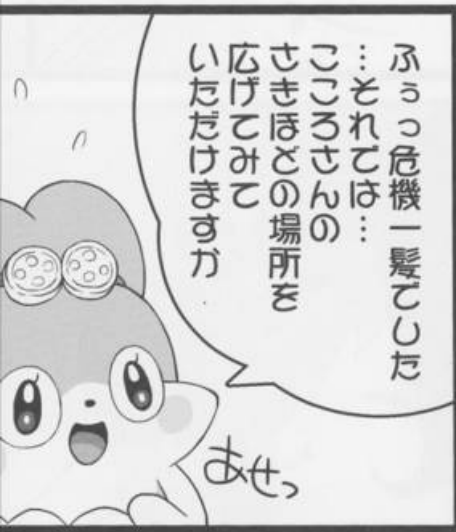 ふぅっ危機一髪でした
…それでは…
こころさんの
さきほどの場所を
広げてみて
いただけますか
あせっ